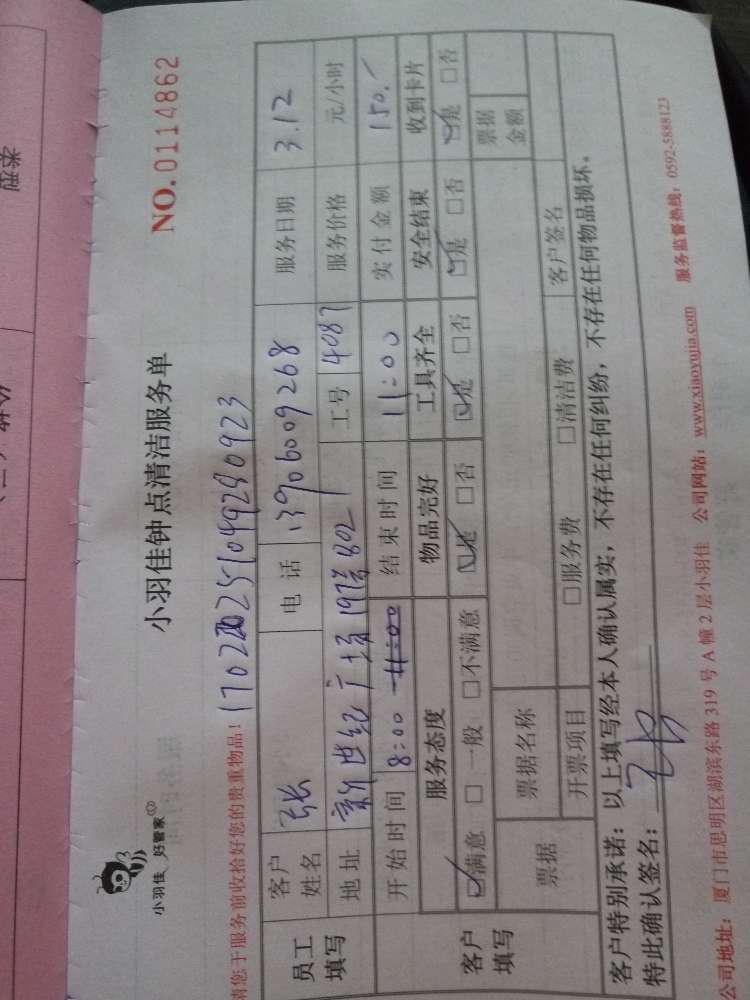 小羽佳 好管家
小羽佳钟点清洁服务单
NO.0114862
请您于服务前收拾好您的贵重物品！
员工填写
客户姓名 张 电话 13906009268 服务日期 3.12
地址 新世纪广场19楼802 工号 4087 服务价格 元/小时
开始时间 8:00 结束时间 11:00 实付金额 150.
客户填写
服务态度 物品完好 工具齐全 安全结束 收到卡片
☑满意 □一般 □不满意 ☑是 □否 ☑是 □否 ☑是 □否 ☑是 □否
票据 票据名称 票据金额
开票项目 □服务费 □清洁费 客户签名
客户特别承诺：以上填写经本人确认属实，不存在任何纠纷，不存在任何物品损坏。
特此确认签名：
公司地址：厦门市思明区湖滨东路319号A幢2层小羽佳 公司网站：www.xiaoyujia.com 服务监督热线：0592-5888123